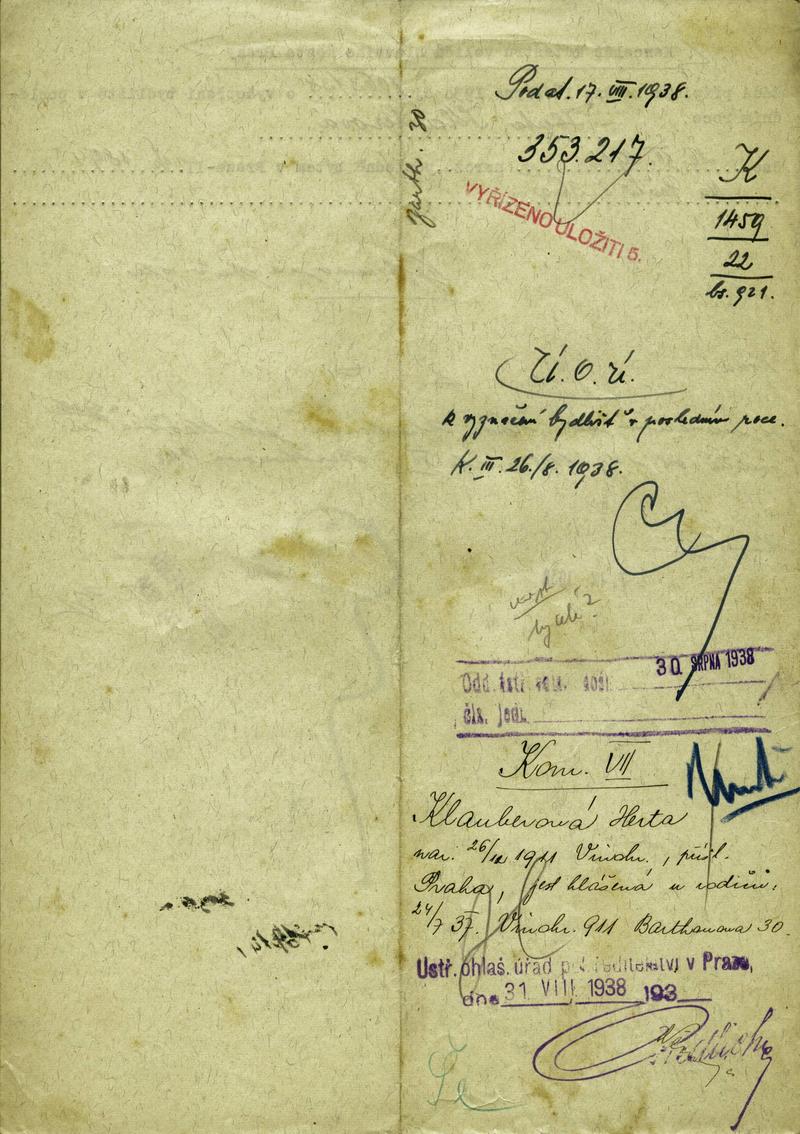 Podat. 17. VIII. 1938.
353.217.
Barth. 30
VYŘÍZENO ULOŽITI 5.
K
1459
22
bs. 921.
k vyznačení bydlišť v posledním roce.
K. III. 26./8. 1938.
bycelé?
30 SRPNA 1938
Odd.
čís. jedn.
Kom. VII
Klauberová Herta
nar. 26/ 1911 Vinohr., přísl.
Praha, jest hlášena u rodičů,
24/7 37. Vinohr. 911 Barthouova 30.
Ustř. ohlaš. úřad pol. ředitelství v Praze,
dne 31 VIII 1938 193